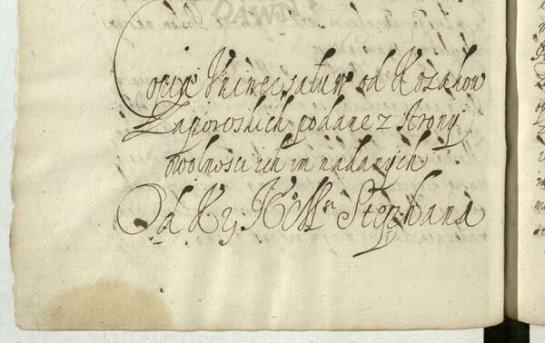 Copia Uniwersałuw od Kozakow
Zaporoskich podane z strony
wolnosci ich im nadanych
Od K Stephana